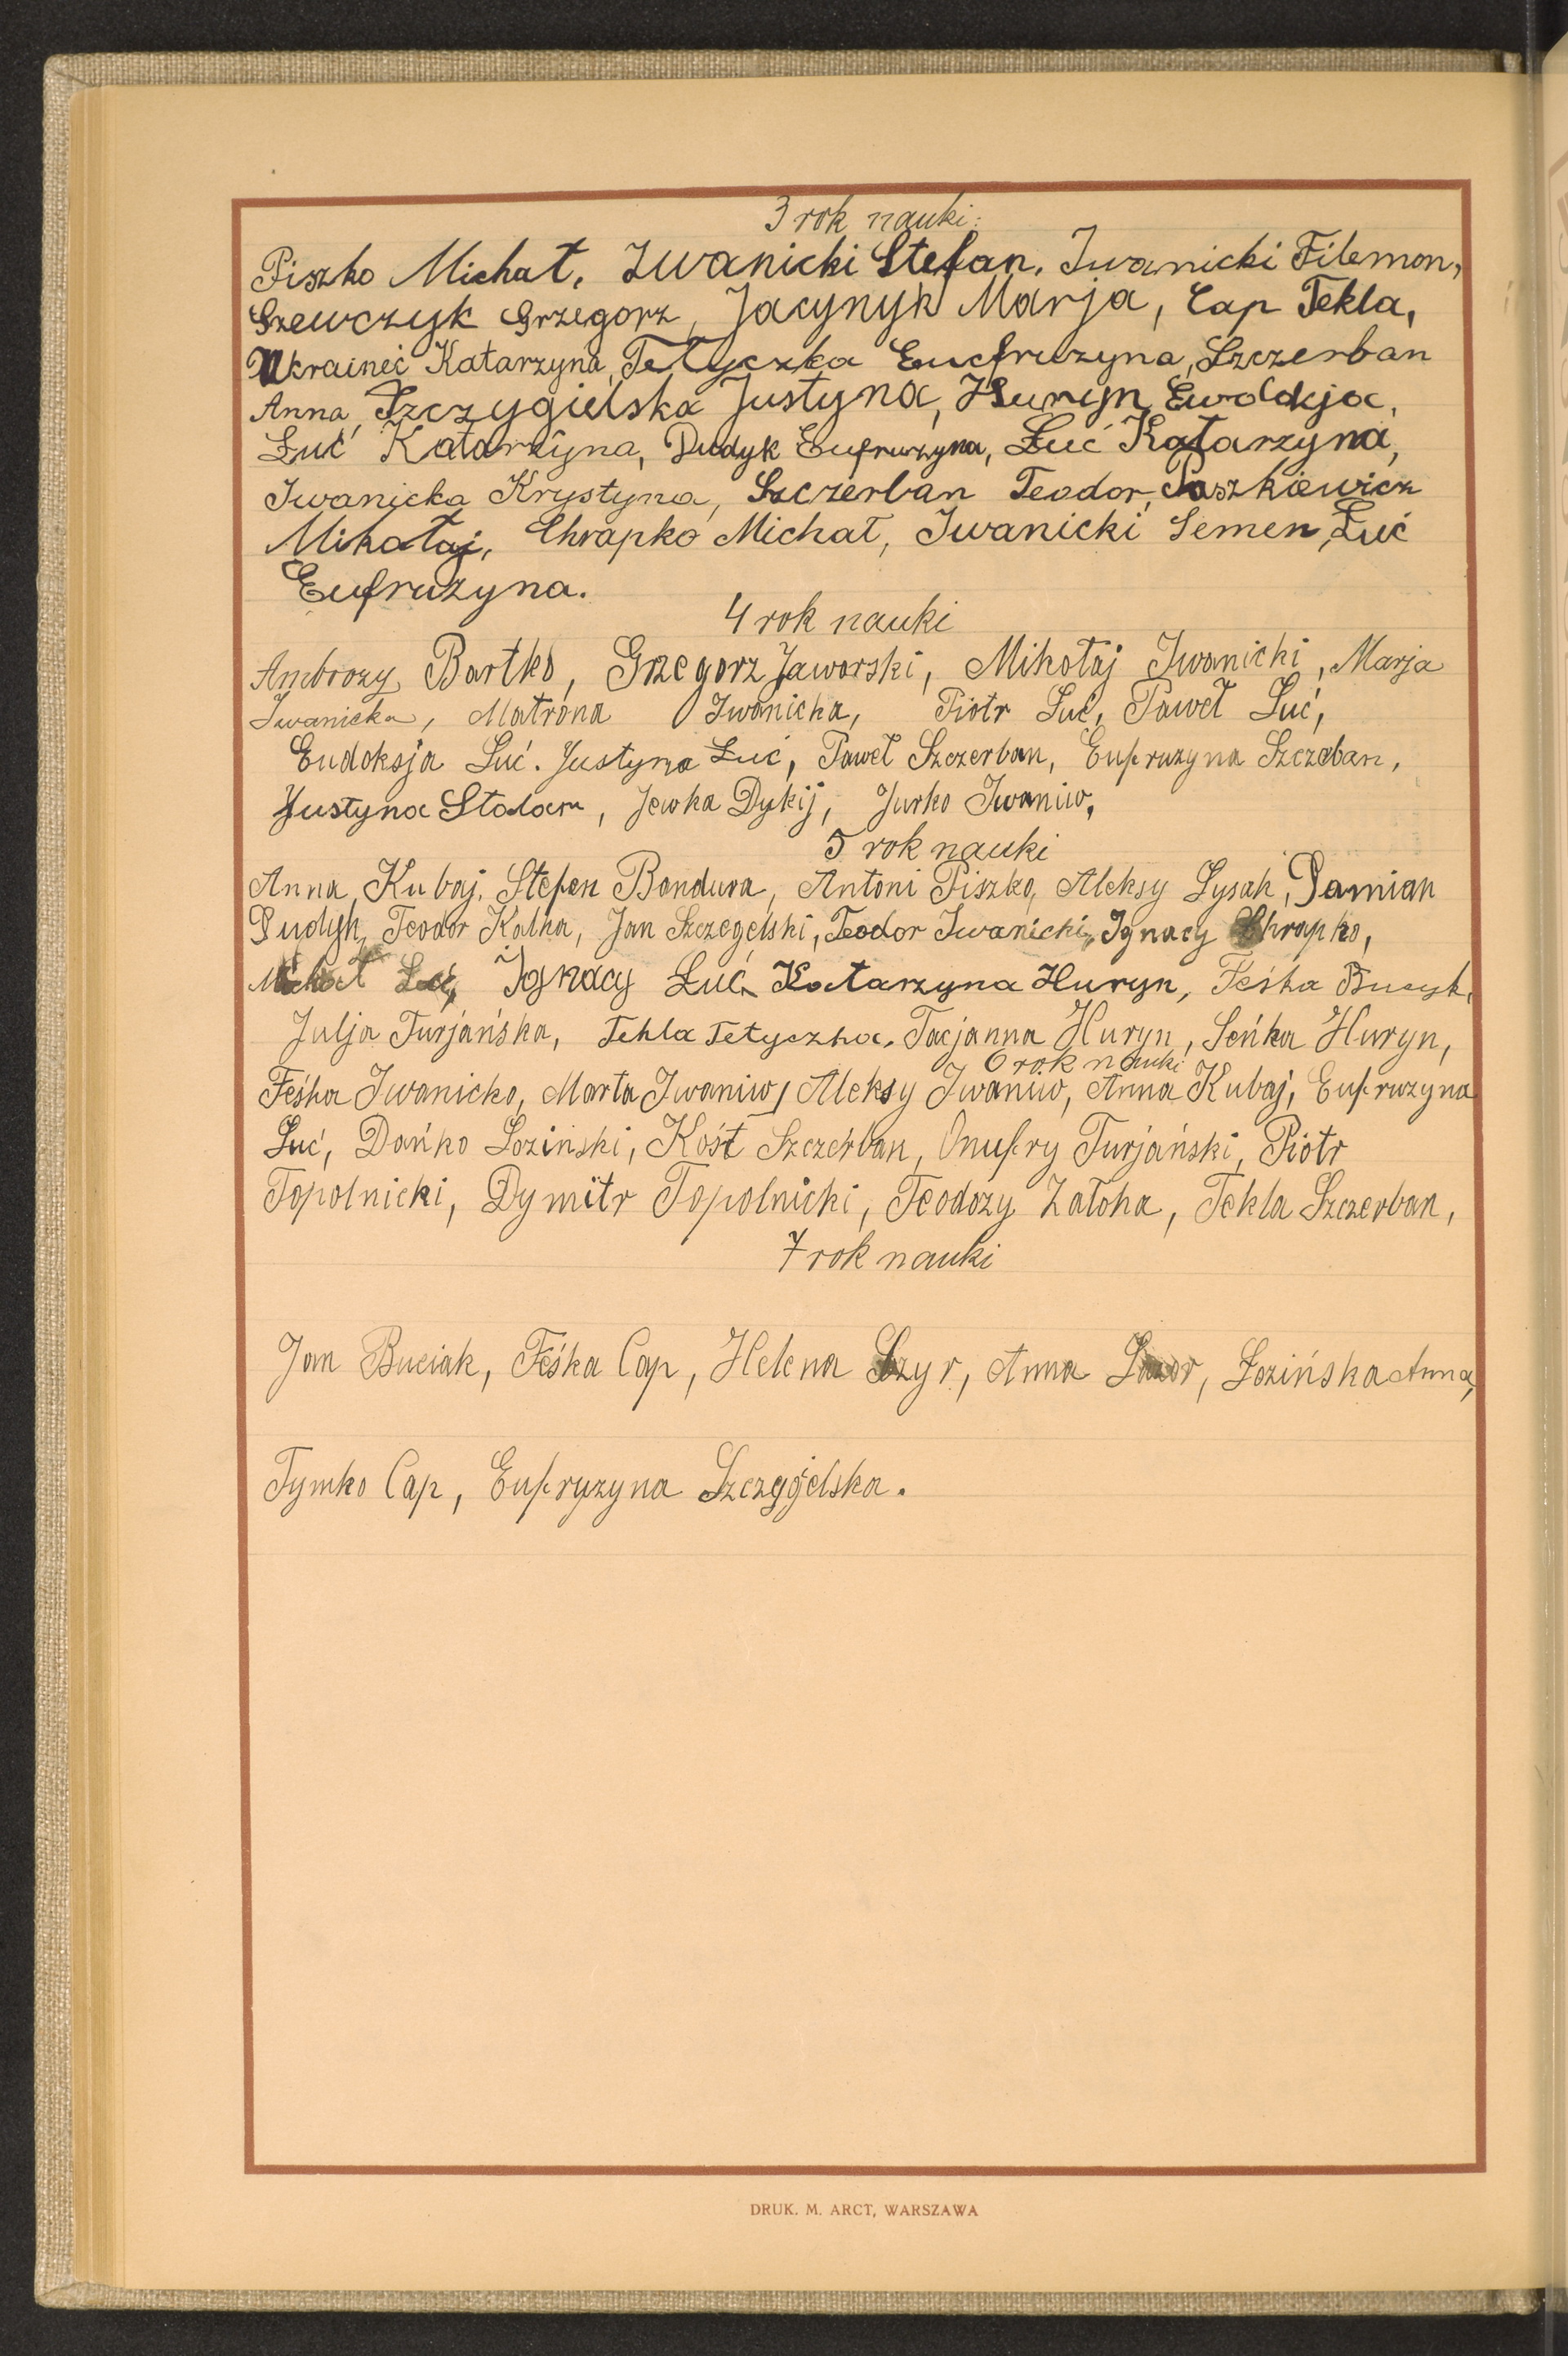 3 rok nauki.
Piszko Michał, Iwanicki Stefan, Iwanicki Filemon,
Szewczyk Grzegorz, Jacynyk Marja, Cap Tekla,
Ukraineć Katarzyna, Tetyczka Eucfruzyna, Szczerban
Anna, Szczygielska Justyna, Huryn Ewdokja,
Łuć Katarzyna, Dudyk Eufruzyna, Łuć Katarzyna,
Iwanicka Krystyna, Szczerban Teodor, Paszkiewicz
Mikołaj, Chrapko Michał, Iwanicki Semen, Łuć
Eufruzyna.
4 rok nauki
Ambrozy Bartko, Grzegorz Jaworski, Mikołaj Iwanicki, Marja
Iwanicka, Matrona Iwanicka, Piotr Łuć, Paweł Łuć,
Eudoksja Łuć. Justyna Łuć, Paweł Szczerban, Eufruzyna Szczeban,
Justyna Stolar, Jewka Dykij, Jurko Iwaniw,
5 rok nauki
Anna Kubaj, Stefen Bandura, Antoni Piszko, Aleksy Łysak, Damian
Dudyk, Teodor Kałka, Jan Szczegelski, Teodor Iwanicki, Ignacy Chrapko,
Michał Łuć, Ignacy Łuć, Katarzyna Huryn, Feśka
Julja Turjańska, Tekla Tetyczka, Tacjanna Huryn, Seńka Huryn,
6 rok nauki
Feśka Iwanicko, Marta Iwaniw, Aleksy Iwaniw, Anna Kubaj, Eufruzyna
Łuć, Dańko Łozinski, Kośt Szczerban, Onufry Turjański, Piotr
Topolnicki, Dymitr Topolnicki, Teodozy Załoha, Tekla Szczerban,
7 rok nauki
Jan Buciak, Feśka Cap, Helena Szyr, Anna Łazor, Łozińska Anna,
Tymko Cap, Eufryzyna Szczygjelska.
DRUK. M. ARCT, WARSZAWA